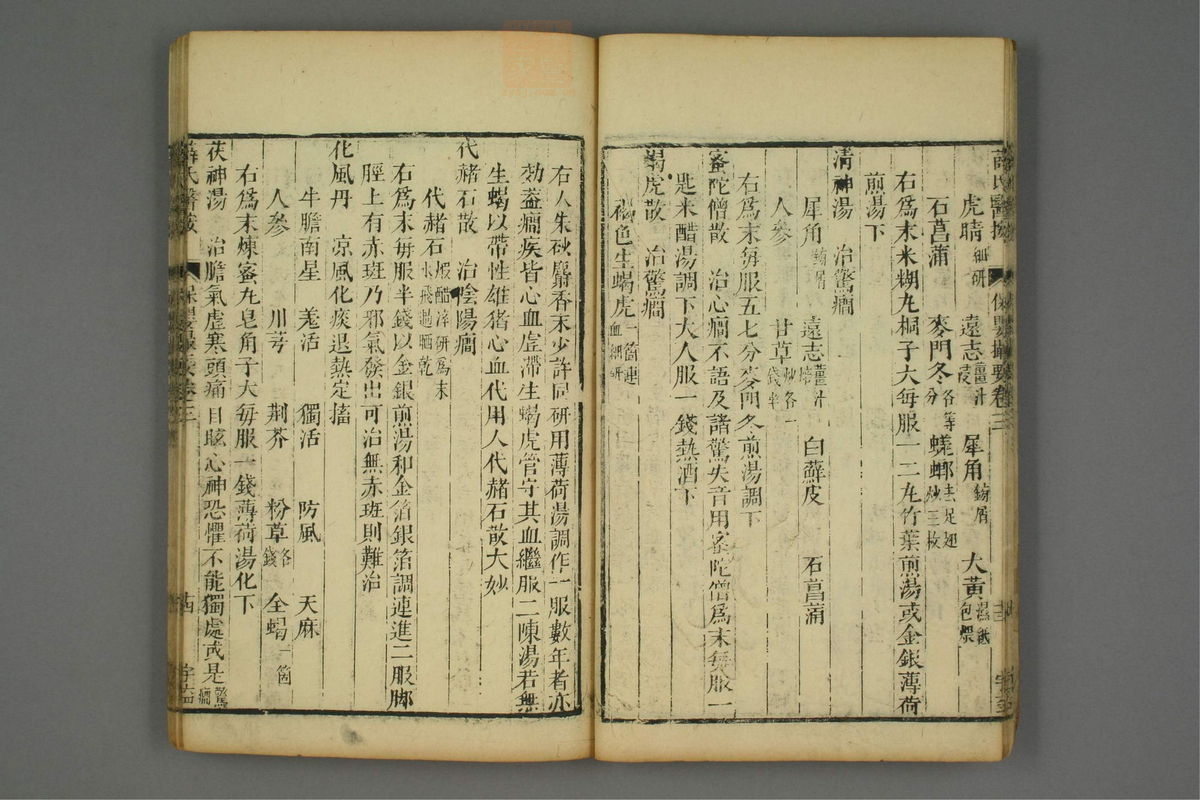 虎睛細研 遠志薑汁浸 犀角鎊屑 大黃濕紙包煨
石菖蒲 麥門冬各等分 蜣蜋去足翅炒三枚
右爲末米糊丸桐子大每服一二丸竹葉煎湯或金銀薄荷
煎湯下
清神湯 治驚癇
犀角鎊屑 遠志薑汁焙 白蘚皮 石菖蒲
人參 甘草炒各一錢半
右爲末每服五七分麥門冬煎湯調下
蜜陀僧散 治心癇不語及諸驚失音用蜜陀僧爲末每服一
匙米醋湯調下大人服一錢熱酒下
蝎虎散 治驚癇
褐色生蝎虎一箇連血細研
右入朱砂麝香末少許同研用薄荷湯調作一服數年者亦
効蓋癇疾皆心血虛滯生蝎虎管守其血繼服二陳湯若無
生蝎以帶性雄猪心血代用入代赭石散大妙
代赭石散 治陰陽癇
代赭石煅醋淬研爲末水飛過晒乾
右爲末每服半錢以金銀煎湯和金箔銀箔調連進二服脚
脛上有赤斑乃邪氣發出可治無赤斑則難治
化風丹 凉風化痰退熱定搐
牛膽南星 羗活 獨活 防風 天麻
人參 川芎 荆芥 粉草各錢 全蝎一箇
右爲末煉蜜丸皂角子大每服一錢薄荷湯化下
茯神湯 治膽氣虛寒頭痛目眩心神恐懼不能獨處或是驚癇
薛氏醫按 保嬰撮要卷三